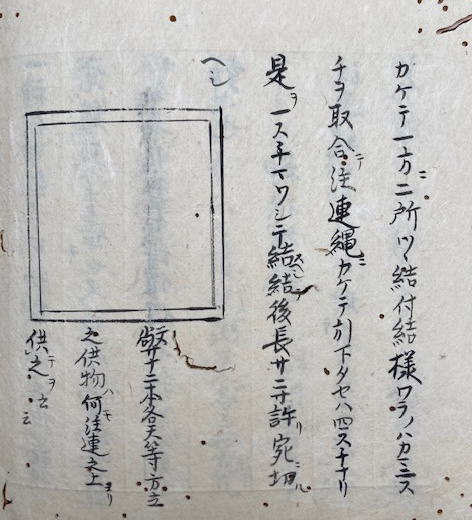 カケテ一方ニ二所ツヽ結付結様ワラノハカミニス
チヲ取合テ注連縄ニカケテ引下タセハ四スチナリ
是ヲ一スチマワシテ結結後長サ二寸許リ宛切ル
ヘシ
サ十二本各天等方立
之供物ハ何モ注連之上ヨリ
供之テヲ云云